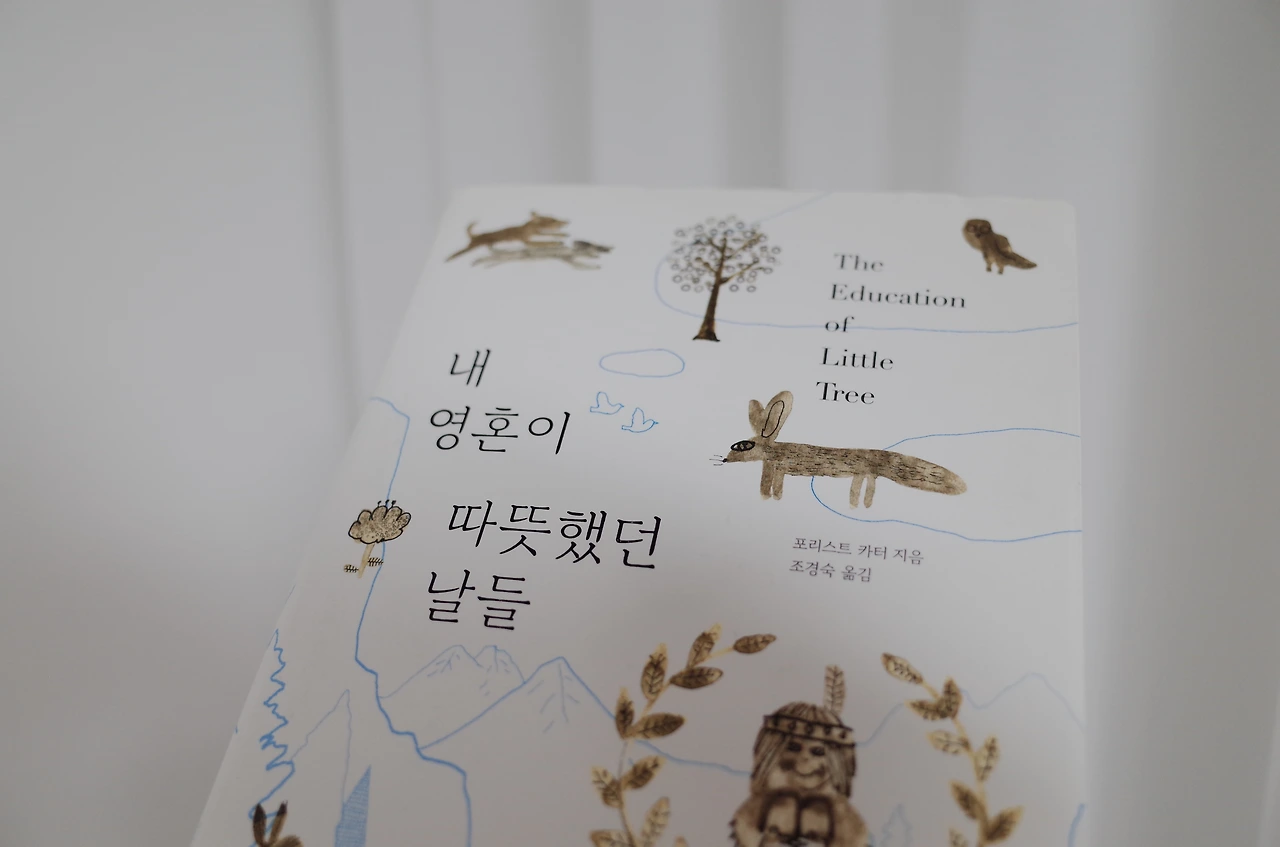 The
Education
of
Little
Tree
내
영혼이
따뜻했던
날들
포리스트 카터 지음
조경숙 옮김